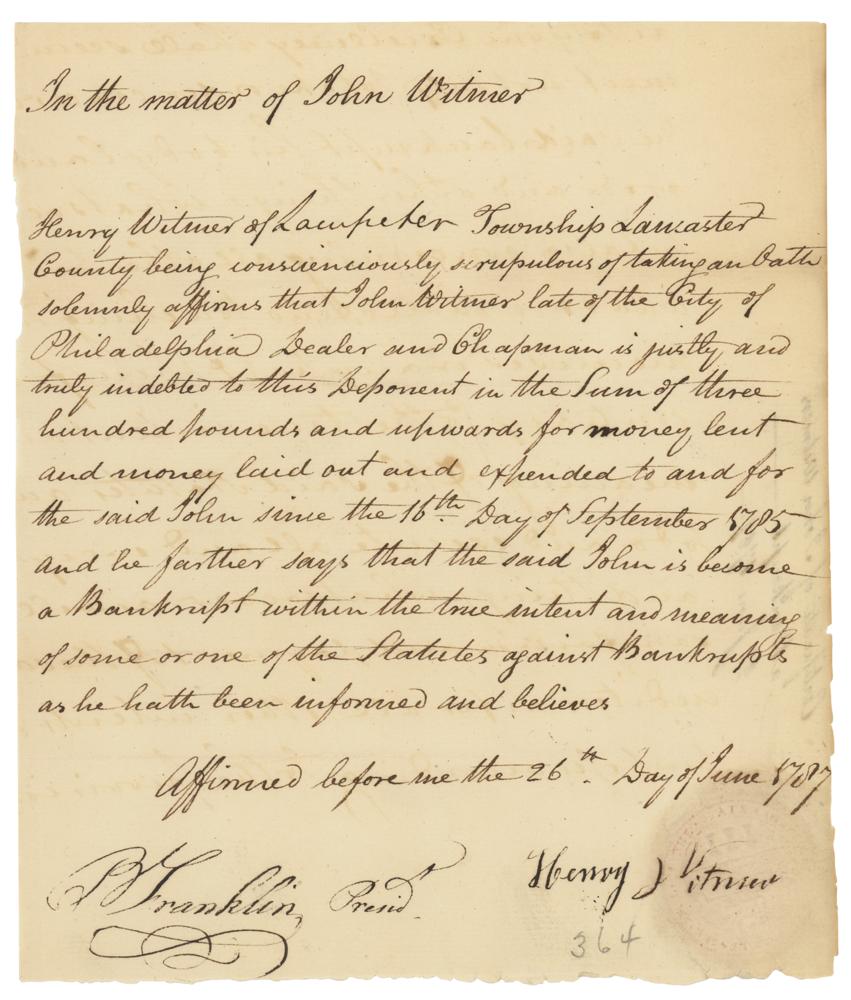 In the matter of John Witmer
Henry Witmer of Lampeter Township Lancaster
County being consciensciously scrupulous of taking an Oath
solemnly affirms that John Witmer late of the City of
Philadelphia Dealer and Chapman is justly and
truly indebted to this Deponent in the Sum of three
hundred pounds and upwards for money lent
and money laid out and expended to and for
the said John since the 16th Day of September 1785
and he farther says that the said John is become
a Bankrupt within the true intent and meaning
of some or one of the Statutes against Bankrupts
as he hath been informed and believes
Affirmed before me the 26th Day of June 1787
B Franklin, Presidt.
Henry Witmer
364